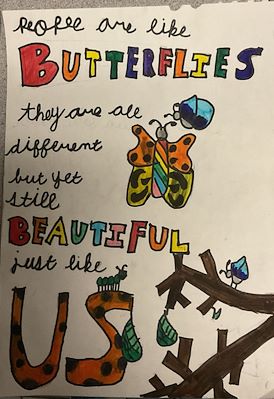 People are like
BUTTERFLIES
they are all
different
but yet
still
BEAUTIFUL
just like
US